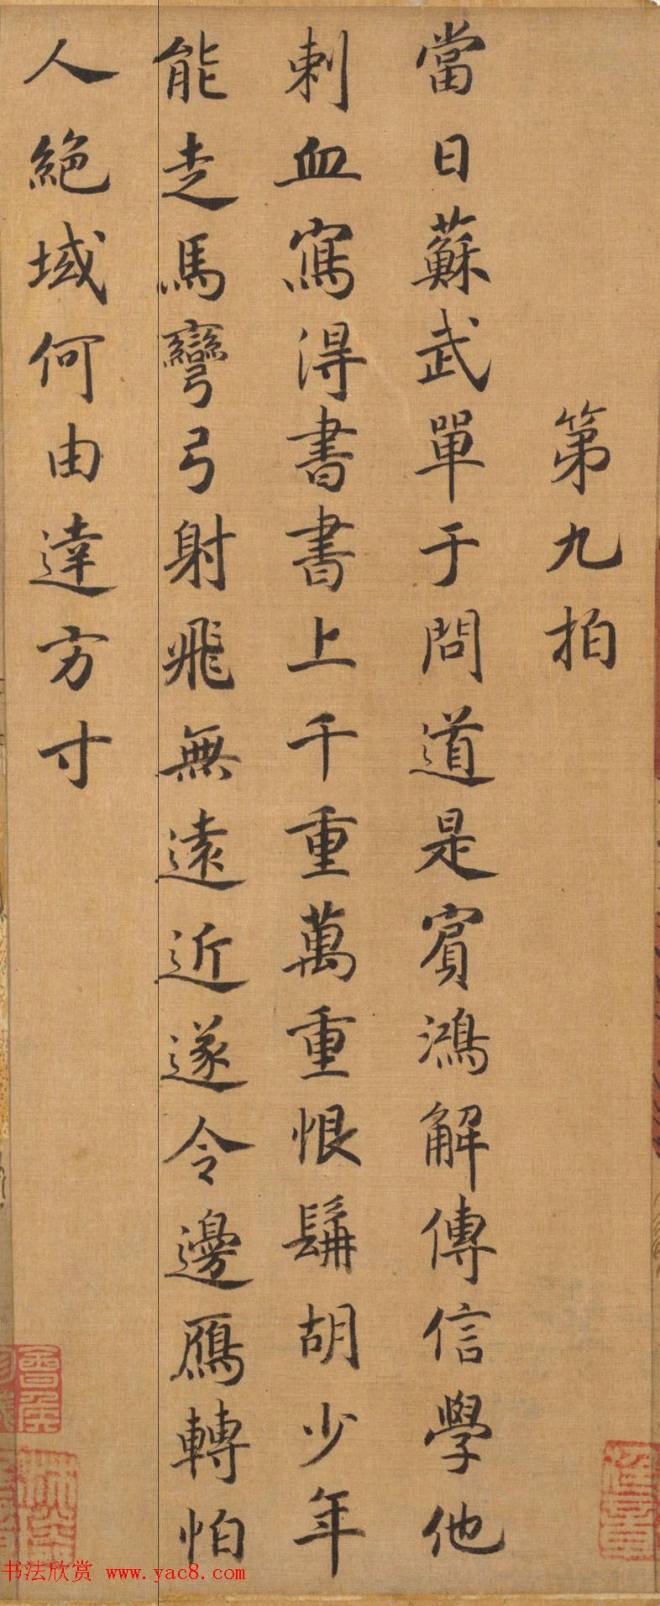 第九拍
當日蘇武單于問道是賓鴻解傳信學他
刺血寫得書書上千重萬重恨髯胡少年
能走馬彎弓射飛無遠近遂令邊鴈轉怕
人絕域何由達方寸
书法欣赏 www.yac8.com